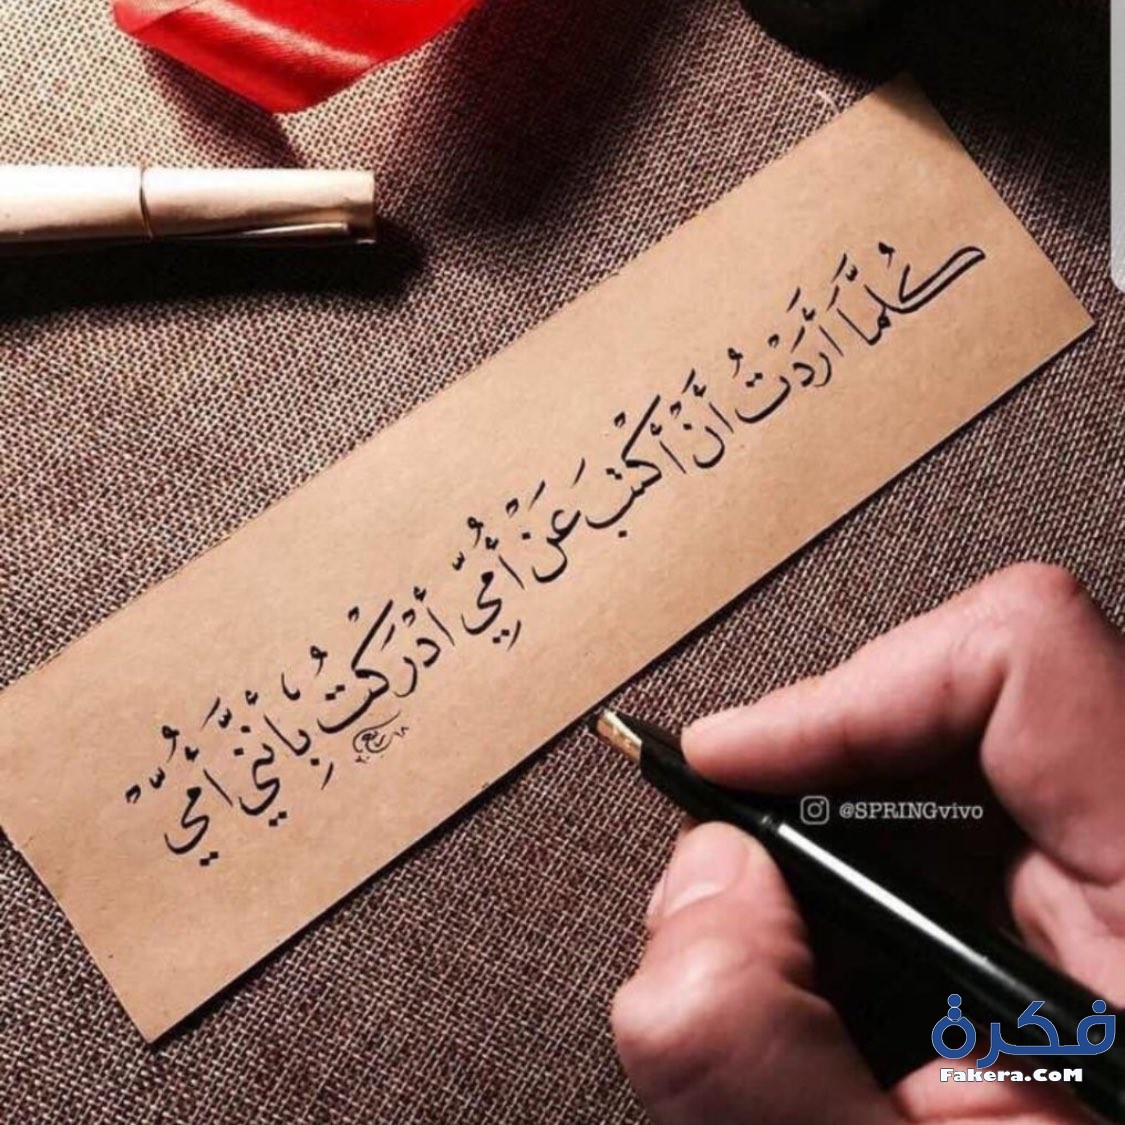 كُلَّمَا أَرَدْتُ أَنْ أَكْتُبَ عَنْ أُمِّي أَدْرَكْتُ بِأَنَّنِي أُمِّيّ
@SPRINGvivo
فكرة
Fakera.CoM